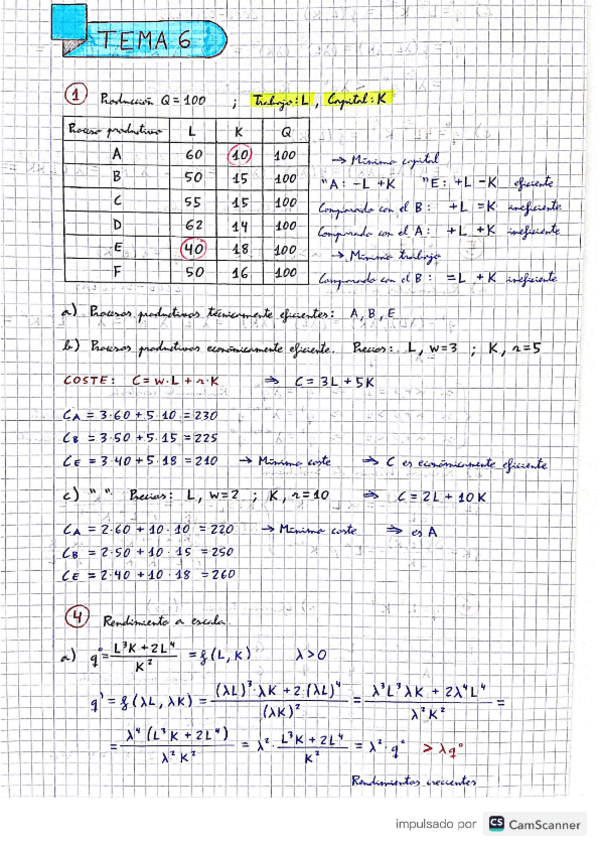 TEMA 6
1 Producción Q = 100 ; Trabajo: L , Capital: K
Proceso productivo L K Q
A 60 10 100 → Mínimo capital
B 50 15 100 "A: -L +K "E: +L -K eficiente
C 55 15 100 Comparado con el B: +L =K ineficiente
D 62 14 100 Comparado con el A: +L +K ineficiente
E 40 18 100 → Mínimo trabajo
F 50 16 100 Comparado con el B: =L +K ineficiente
a) Procesos productivos técnicamente eficientes: A, B, E
b) Procesos productivos económicamente eficiente. Precios: L, w=3 ; K, r=5
COSTE: C = w·L + r·K ⇒ C = 3L + 5K
CA = 3·60 + 5·10 = 230
CB = 3·50 + 5·15 = 225
CE = 3·40 + 5·18 = 210 → Mínimo coste ⇒ C es económicamente eficiente
c) " ". Precios: L, w=2 ; K, r=10 ⇒ C = 2L + 10K
CA = 2·60 + 10·10 = 220 → Mínimo coste ⇒ es A
CB = 2·50 + 10·15 = 250
CE = 2·40 + 10·18 = 260
4 Rendimiento a escala
a) q° = (L³K + 2L⁴)/K² = f(L, K) λ > 0
q' = f(λL, λK) = ((λL)³·λK + 2(λL)⁴)/(λK)² = (λ³L³λK + 2λ⁴L⁴)/(λ²K²) =
= λ⁴(L³K + 2L⁴)/(λ²K²) = λ²·(L³K + 2L⁴)/K² = λ²·q° > λq°
Rendimientos crecientes
impulsado por CS CamScanner